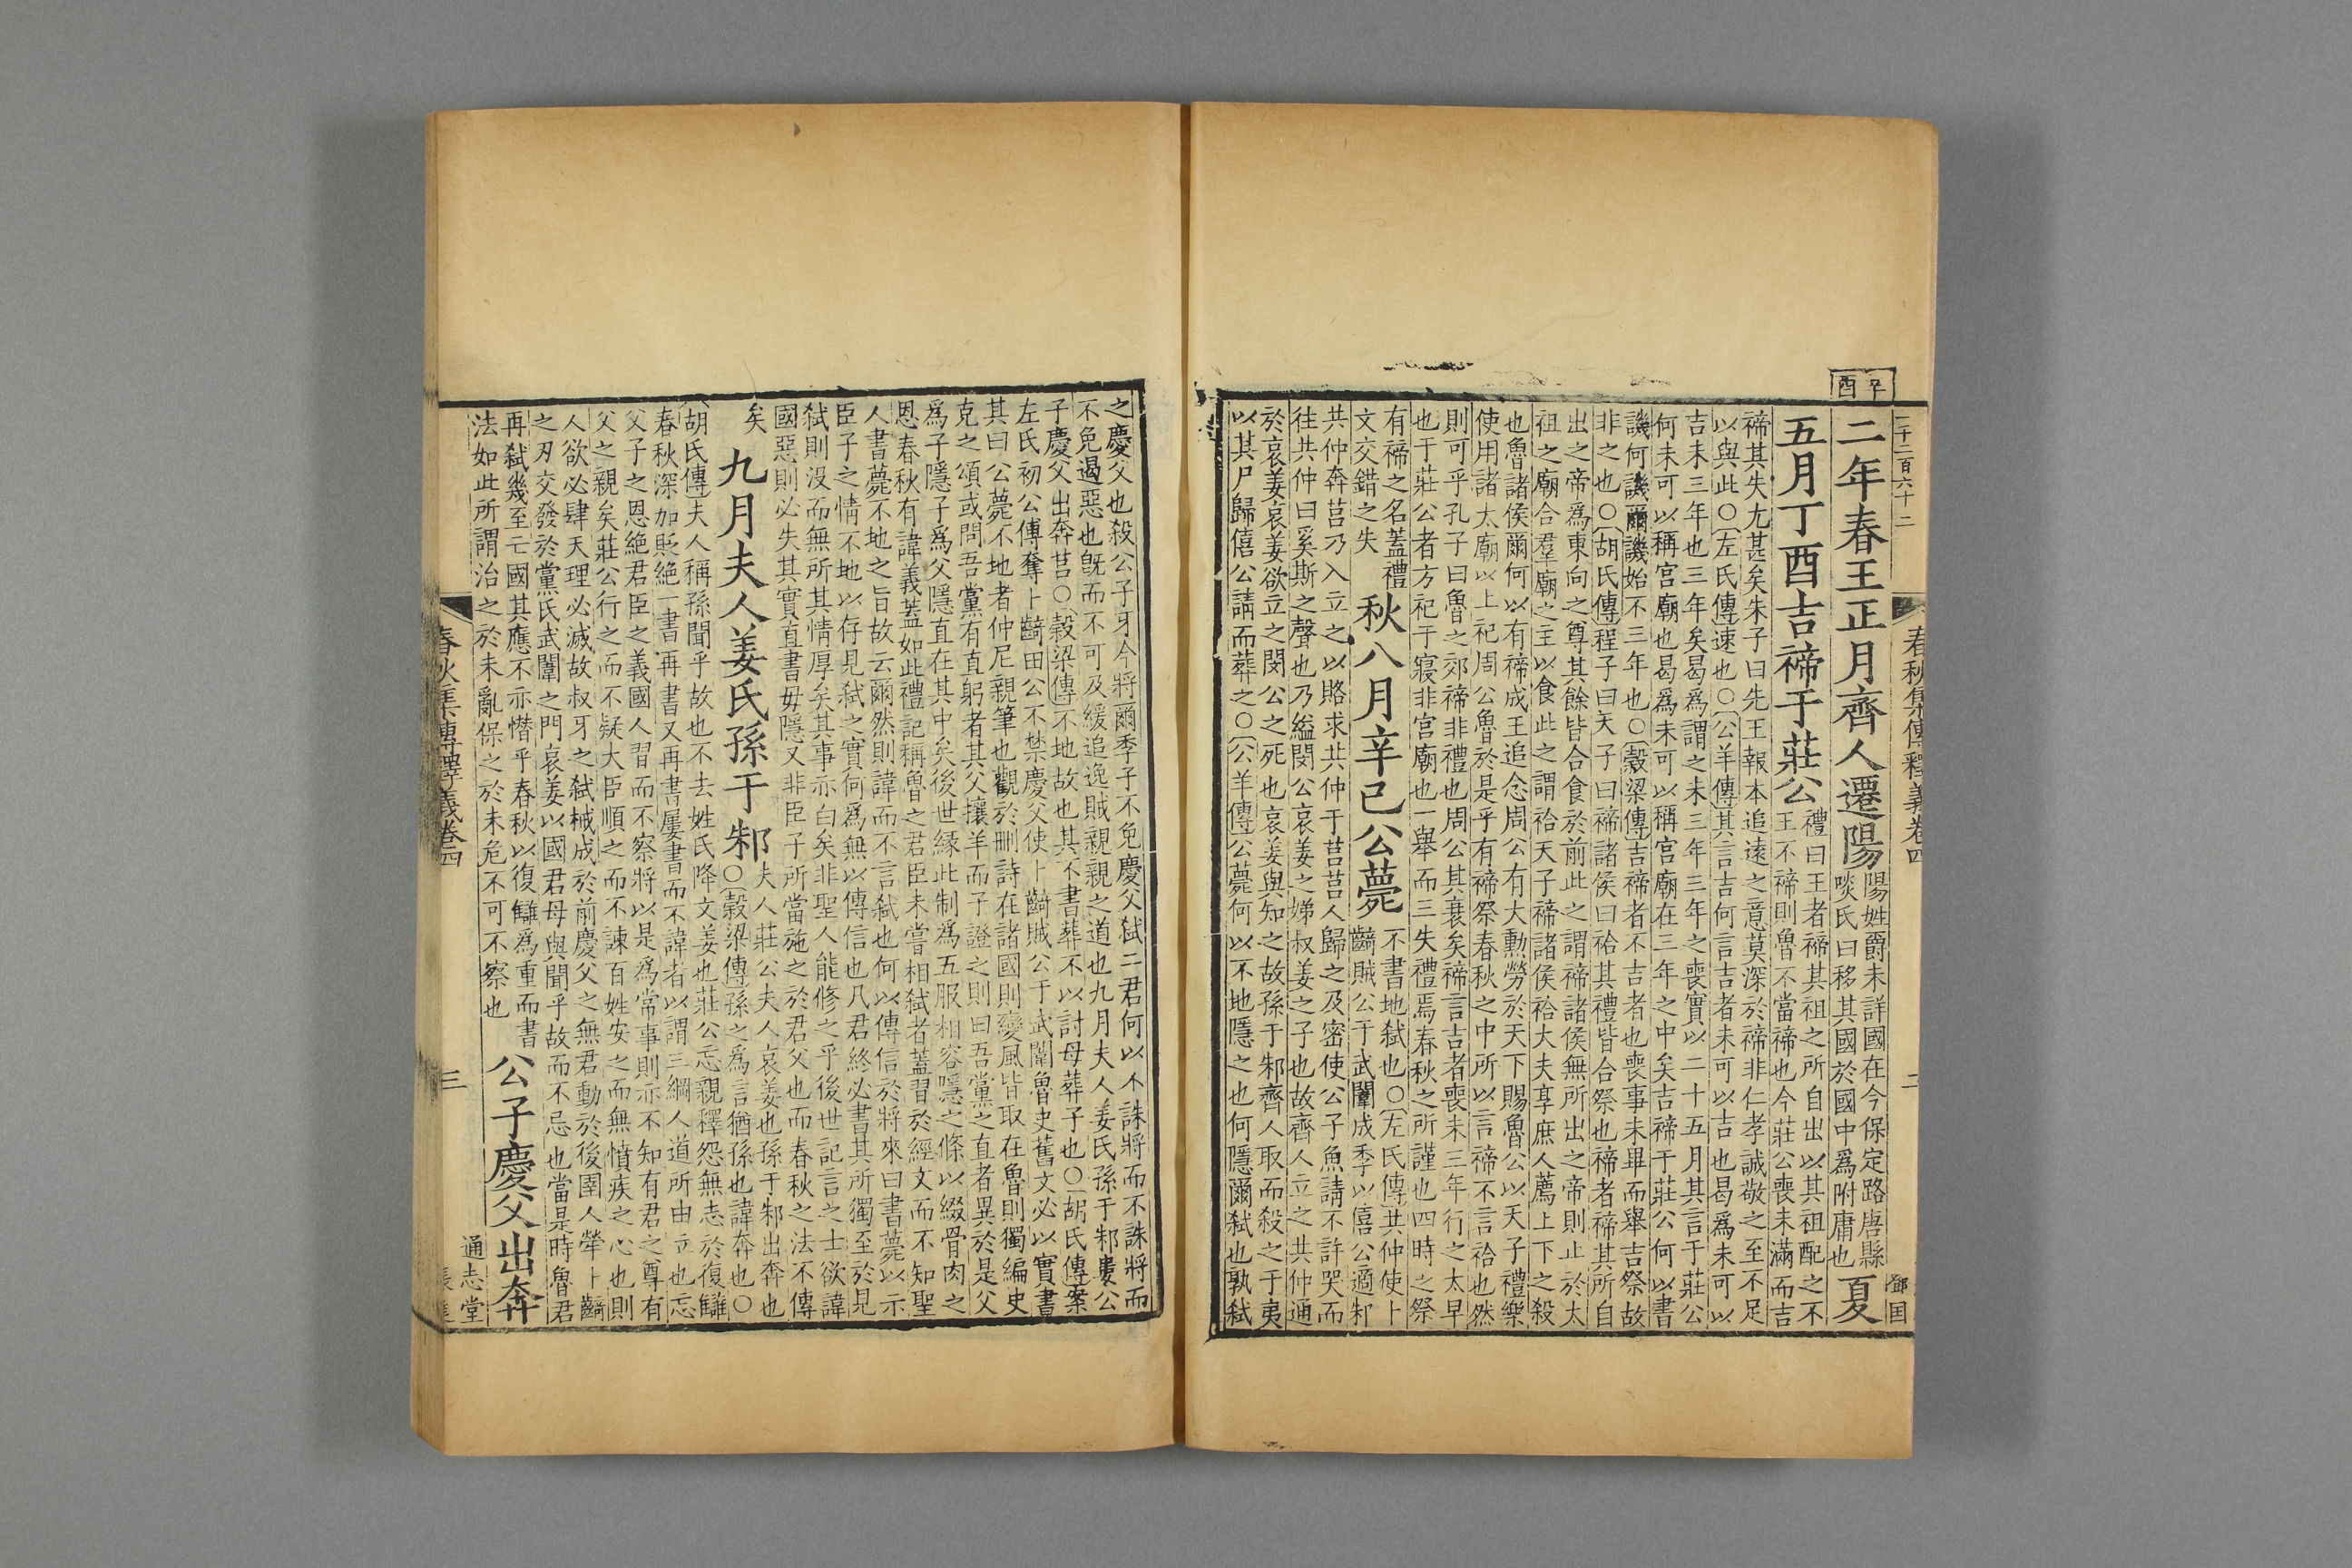 辛酉
春秋集傳釋義卷四
二
鄧国
二年春王正月齊人遷陽
陽姓爵未詳國在今保定路唐縣
啖氏曰移其國於國中爲附庸也
夏
五月丁酉吉禘于莊公
禮曰王者禘其祖之所自出以其祖配之不
王不禘則魯不當禘也今莊公喪未滿而吉
禘其失尢甚矣朱子曰先王報本追遠之意莫深於禘非仁孝誠敬之至不足
以與此○左氏傳速也○公羊傳其言吉何言吉者未可以吉也曷爲未可以
吉未三年也三年矣曷爲謂之未三年三年之喪實以二十五月其言于莊公
何未可以稱宮廟也曷爲未可以稱宮廟在三年之中矣吉禘于莊公何以書
譏何譏爾譏始不三年也○穀梁傳吉禘者不吉者也喪事未畢而舉吉祭故
非之也○胡氏傳程子曰天子曰禘諸侯曰祫其禮皆合祭也禘者禘其所自
出之帝爲東向之尊其餘皆合食於前此之謂禘諸侯無所出之帝則止於太
祖之廟合羣廟之主以食此之謂祫天子禘諸侯祫大夫享庶人薦上下之殺
也魯諸侯爾何以有禘成王追念周公有大勳勞於天下賜魯公以天子禮樂
使用諸太廟以上祀周公魯於是乎有禘祭春秋之中所以言禘不言祫也然
則可乎孔子曰魯之郊禘非禮也周公其衰矣禘言吉者喪未三年行之太早
也于莊公者方祀于寢非宮廟也一舉而三失禮焉春秋之所謹也四時之祭
有禘之名蓋禮
文交錯之失
秋八月辛已公薨
不書地弑也○左氏傳共仲使卜
齮賊公于武闈成季以僖公適邾
共仲奔莒乃入立之以賂求共仲于莒莒人歸之及密使公子魚請不許哭而
往共仲曰奚斯之聲也乃縊閔公哀姜之娣叔姜之子也故齊人立之共仲通
於哀姜哀姜欲立之閔公之死也哀姜與知之故孫于邾齊人取而殺之于夷
以其尸歸僖公請而葬之○公羊傳公薨何以不地隱之也何隱爾弑也孰弑
之慶父也殺公子牙今將爾季子不免慶父弑二君何以不誅將而不誅將而
不免遏惡也旣而不可及緩追逸賊親親之道也九月夫人姜氏孫于邾慶公
子慶父出奔莒○穀梁傳不地故也其不書葬不以討母葬子也○胡氏傳案
左氏初公傅奪卜齮田公不禁慶父使卜齮賊公于武闈魯史舊文必以實書
其曰公薨不地者仲尼親筆也觀於刪詩在諸國則變風皆取在魯則獨編史
克之頌或問吾黨有直躬者其父攘羊而子證之則曰吾黨之直者異於是父
爲子隱子爲父隱直在其中矣後世緣此制爲五服相容隱之條以綴骨肉之
恩春秋有諱義蓋如此禮記稱魯之君臣未嘗相弑者蓋習於經文而不知聖
人書薨不地之旨故云爾然則諱而不言弑也何以傳信於將來曰書薨以示
臣子之情不地以存見弑之實何爲無以傳信也凡君終必書其所獨至於見
弑則没而無所其情厚矣其事亦白矣非聖人能修之乎後世記言之士欲諱
國惡則必失其實直書毋隱又非臣子所當施之於君父也而春秋之法不傳
矣
九月夫人姜氏孫于邾
夫人莊公夫人哀姜也孫于邾出奔也
○穀梁傳孫之爲言猶孫也諱奔也○
胡氏傳夫人稱孫聞乎故也不去姓氏降文姜也莊公忘親釋怨無志於復讎
春秋深加貶絶一書再書又再書屢書而不諱者以謂三綱人道所由立也忘
父子之恩絶君臣之義國人習而不察將以是爲常事則亦不知有君之尊有
父之親矣莊公行之而不疑大臣順之而不諫百姓安之而無憤疾之心也則
人欲必肆天理必滅故叔牙之弑械成於前慶父之無君動於後圉人犖卜齮
之刃交發於黨氏武闈之門哀姜以國君母與聞乎故而不忌也當是時魯君
再弑幾至亡國其應不亦憯乎春秋以復讎爲重而書
法如此所謂治之於未亂保之於未危不可不察也
公子慶父出奔
春秋集傳釋義卷四
三
通志堂